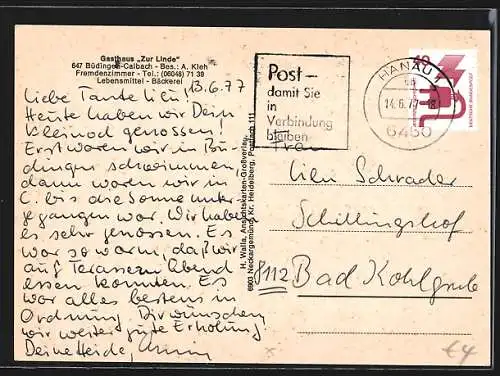 Gasthaus „Zur Linde"
647 Büdingen-Calbach - Bes.: A. Kleh
Fremdenzimmer - Tel.: (06048) 71 39
Lebensmittel - Bäckerei
13.6.77
Liebe Tante Lieu!
Heute haben wir Dein
Kleinod genossen!
Erst waren wir in Bü-
dingen schwimmen,
dann waren wir in
C. bis die Sonne unter-
gegangen war. Wir haben
es sehr genossen. Es
war so warm, daß wir
auf Terassen Abend
essen konnten. Es
war alles bestens in
Ordnung. Dir wünschen
wir weiter gute Erholung!
Deine Heide,
H. Walla, Ansichtskarten-Großverlag,
6903 Neckargemünd, Kr. Heidelberg, Postfach 111
Post-
damit Sie
in
Verbindung
bleiben
HANAU 1
14.6.77-18
6450
10
DEUTSCHE BUNDESPOST
Frau
Lieu Schrader
Schillingshof
8112 Bad Kohlgrub
€4